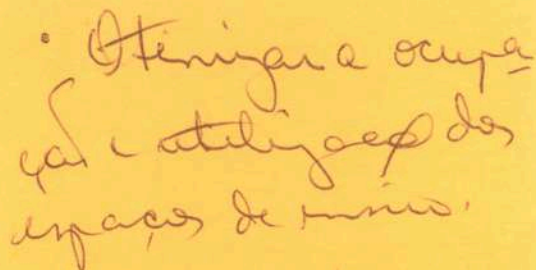 • Otimizar a ocupa
ção e utilização dos
espaços de ensino.